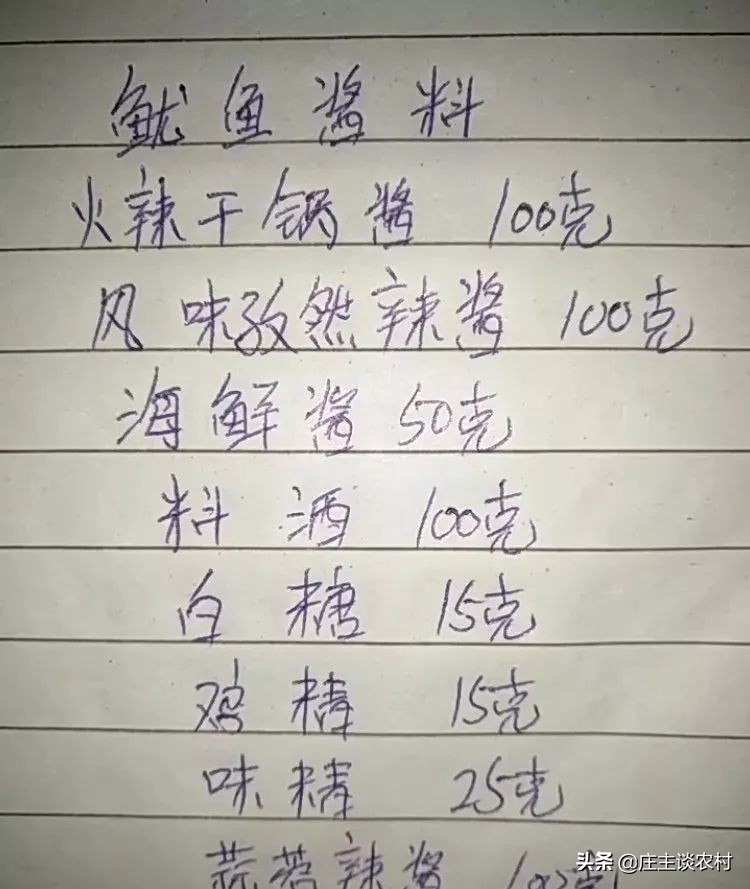 鱿鱼酱料
火辣干锅酱 100克
风味孜然辣酱 100克
海鲜酱 50克
料酒 100克
白糖 15克
鸡精 15克
味精 25克
蒜蓉辣酱
头条 @庄主谈农村